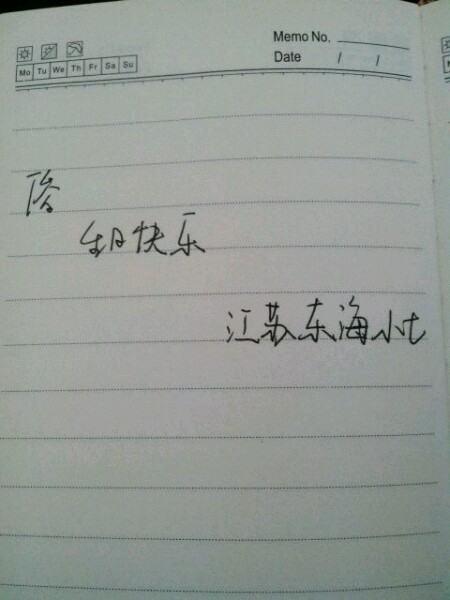 Memo No.
Date / /
Mo Tu We Th Fr Sa Su
生日快乐
江苏东海小七